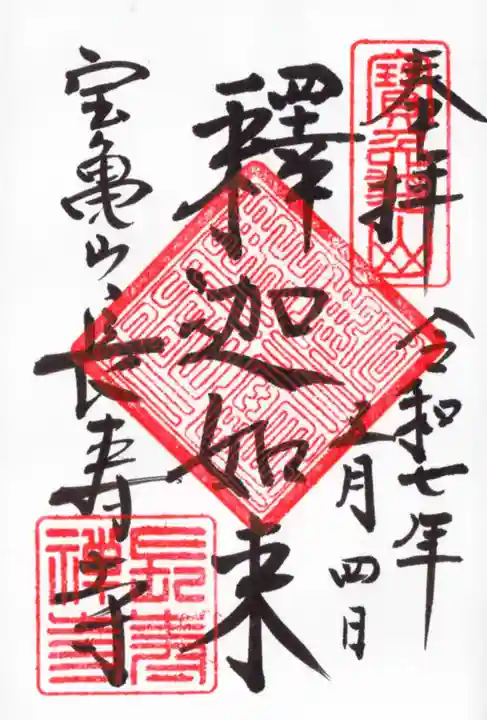 奉拝
令和七年
五月四日
釋迦如来
宝亀山長寿寺
寶亀山
長壽禅寺